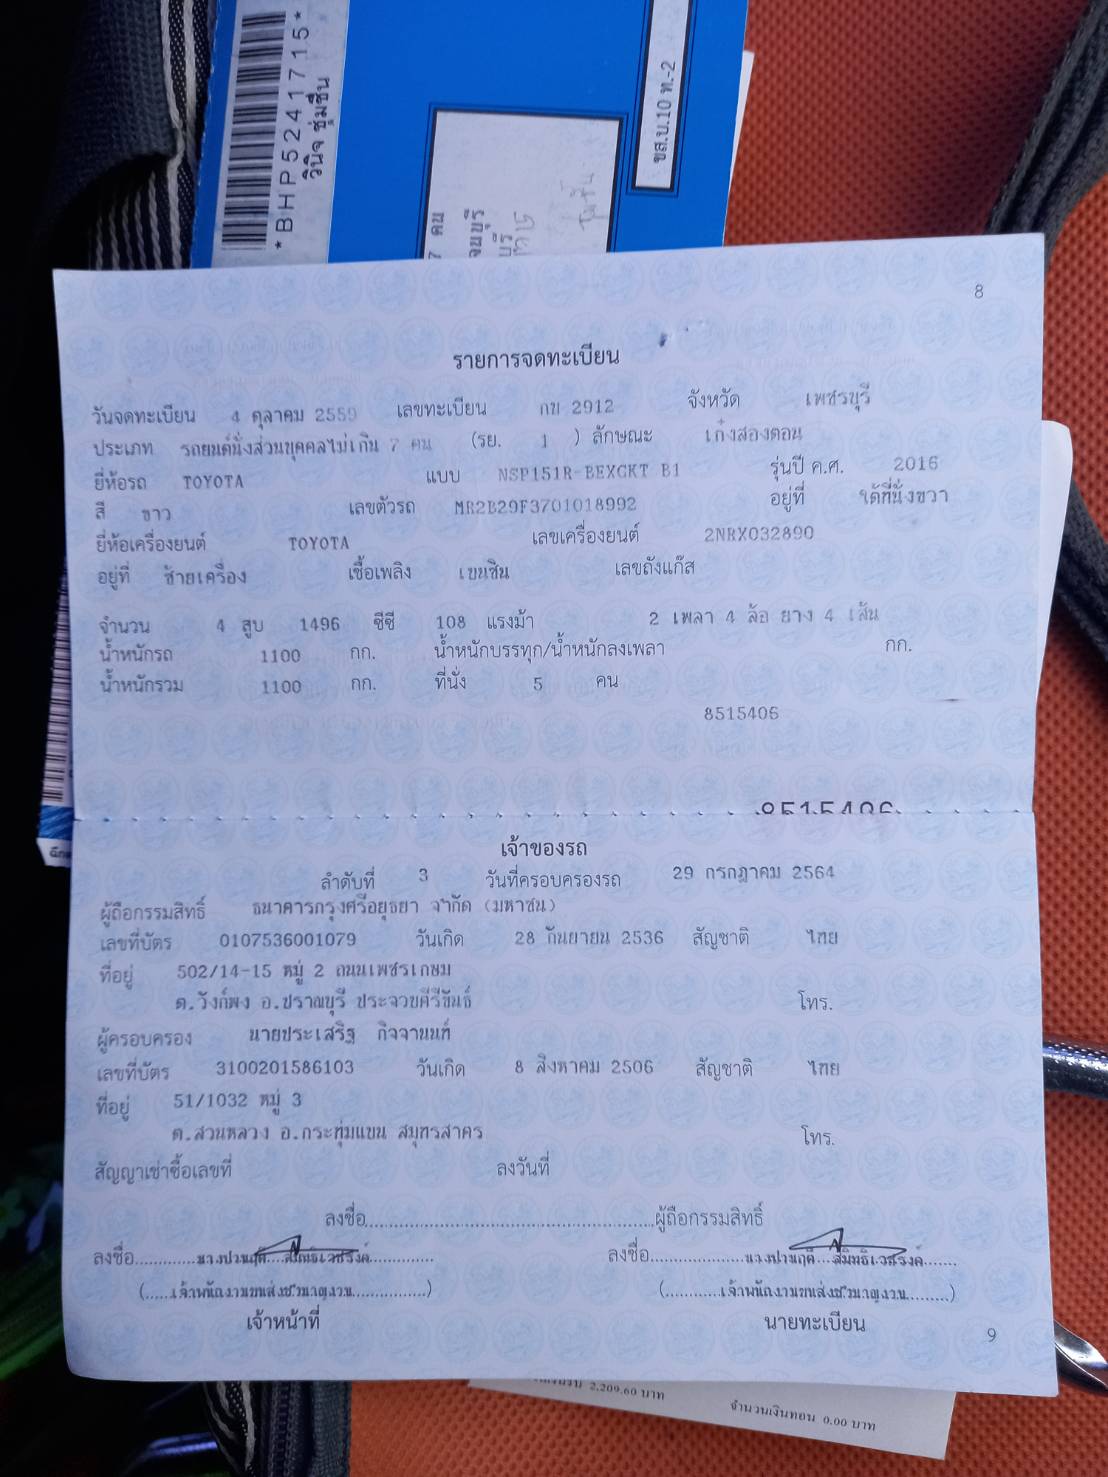 *BHP5241715*
วินิจ ชุ่มชื่น
ขส.บ.10 ท.-2
7 คน
8
รายการจดทะเบียน
วันจดทะเบียน 4 ตุลาคม 2559 เลขทะเบียน กข 2912 จังหวัด เพชรบุรี
ประเภท รถยนต์นั่งส่วนบุคคลไม่เกิน 7 คน (รย. 1 ) ลักษณะ เก๋งสองตอน
ยี่ห้อรถ TOYOTA แบบ NSP151R-BEXGKT B1 รุ่นปี ค.ศ. 2016
สี ขาว เลขตัวรถ MR2B29F3701018992 อยู่ที่ ใต้ที่นั่งขวา
ยี่ห้อเครื่องยนต์ TOYOTA เลขเครื่องยนต์ 2NRX032890
อยู่ที่ ซ้ายเครื่อง เชื้อเพลิง เบนซิน เลขถังแก๊ส
จำนวน 4 สูบ 1496 ซีซี 108 แรงม้า 2 เพลา 4 ล้อ ยาง 4 เส้น
น้ำหนักรถ 1100 กก. น้ำหนักบรรทุก/น้ำหนักลงเพลา กก.
น้ำหนักรวม 1100 กก. ที่นั่ง 5 คน
8515406
8515406
เจ้าของรถ
ลำดับที่ 3 วันที่ครอบครองรถ 29 กรกฎาคม 2564
ผู้ถือกรรมสิทธิ์ ธนาคารกรุงศรีอยุธยา จำกัด (มหาชน)
เลขที่บัตร 0107536001079 วันเกิด 28 กันยายน 2536 สัญชาติ ไทย
ที่อยู่ 502/14-15 หมู่ 2 ถนนเพชรเกษม
ต.วังก์พง อ.ปราณบุรี ประจวบคีรีขันธ์ โทร.
ผู้ครอบครอง นายประเสริฐ กิจจานนท์
เลขที่บัตร 3100201586103 วันเกิด 8 สิงหาคม 2506 สัญชาติ ไทย
ที่อยู่ 51/1032 หมู่ 3
ต.สวนหลวง อ.กระทุ่มแบน สมุทรสาคร โทร.
สัญญาเช่าซื้อเลขที่ ลงวันที่
ลงชื่อ..........ผู้ถือกรรมสิทธิ์
ลงชื่อ.......... ลงชื่อ..........
(.....เจ้าพนักงานขนส่งชำนาญงาน.....) (.....เจ้าพนักงานขนส่งชำนาญงาน.....)
เจ้าหน้าที่ นายทะเบียน
9
2,209.60 บาท จำนวนเงินทอน 0.00 บาท